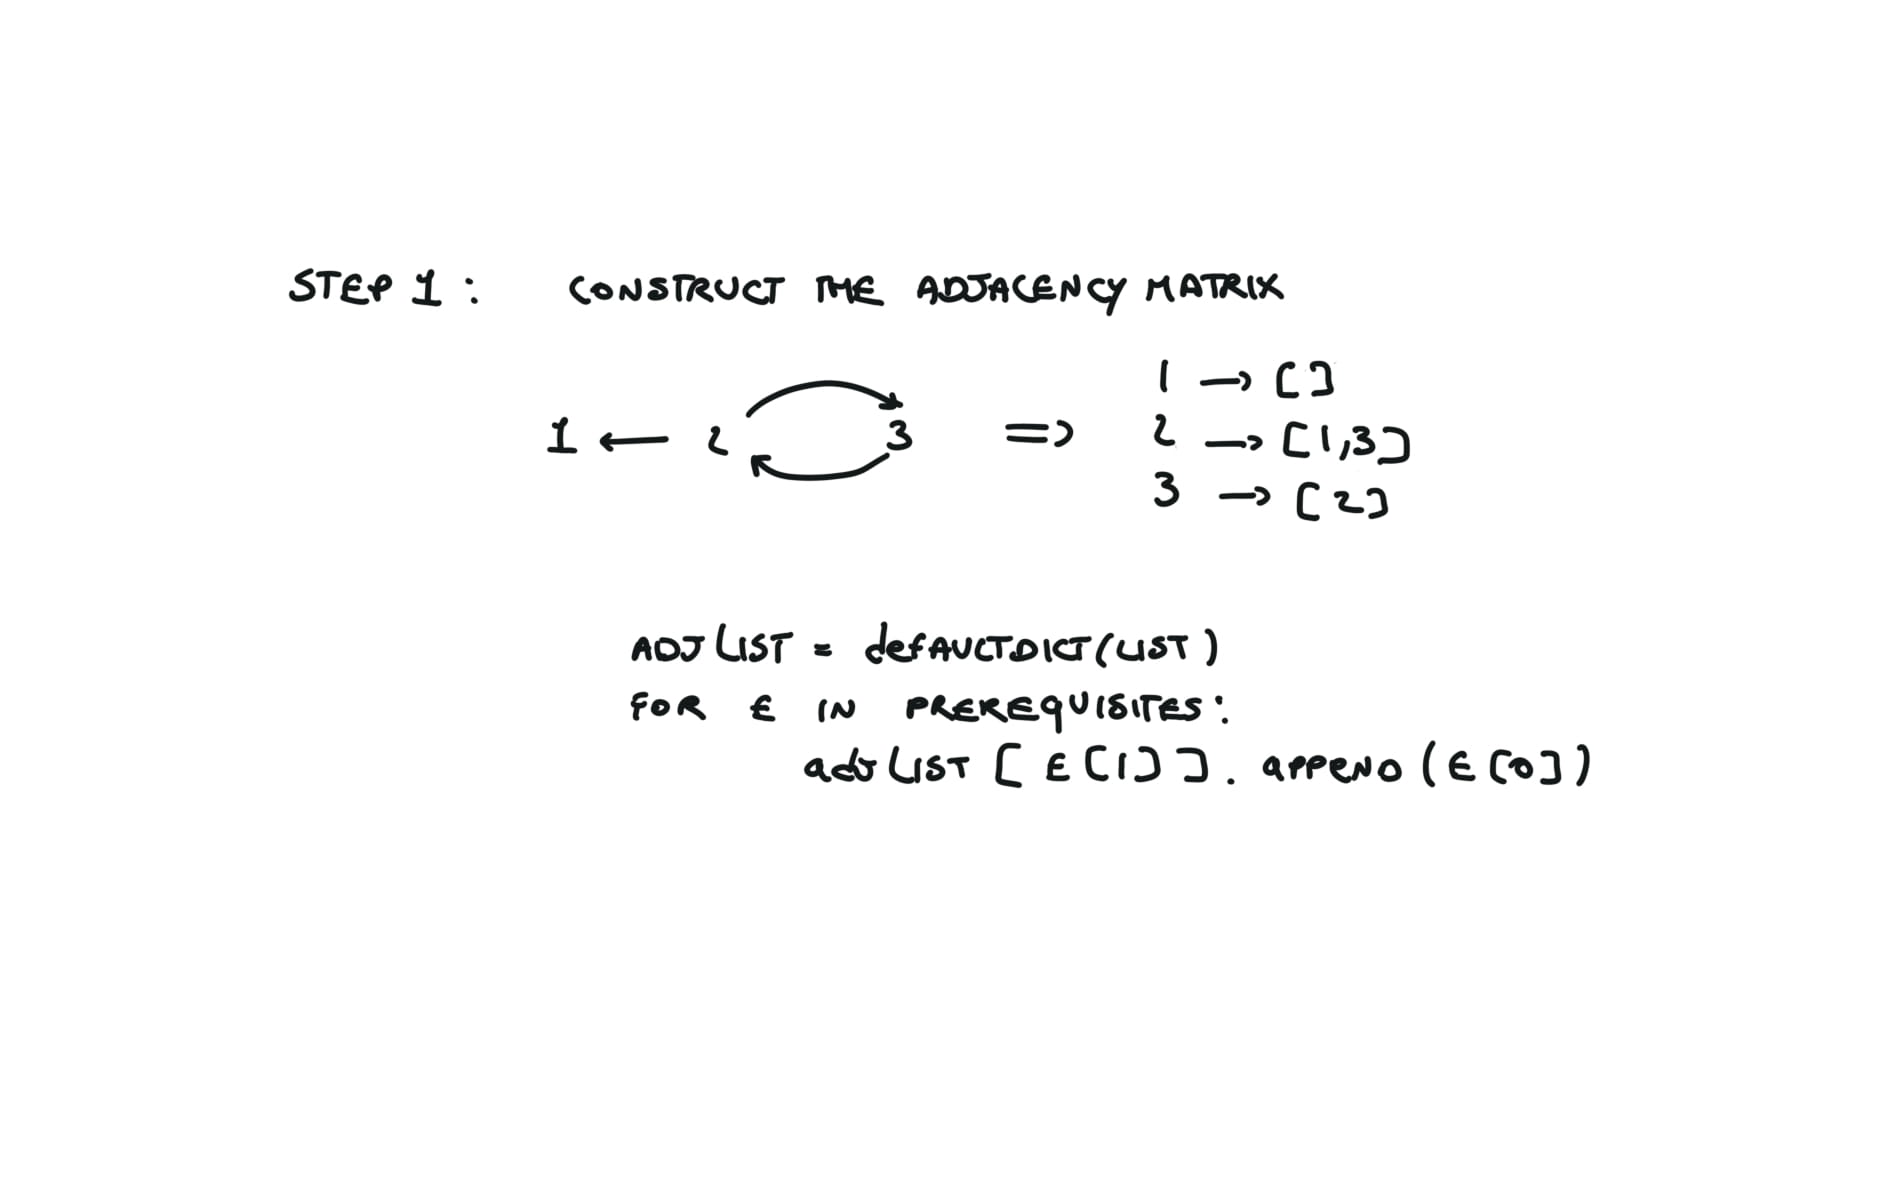 STEP 1: CONSTRUCT THE ADJACENCY MATRIX
1 ← 2 3 => 1 → []
2 → [1,3]
3 → [2]
ADJLIST = defAULTDICT(LIST)
FOR E IN PREREQUISITES:
adJLIST[E[1]].APPEND(E[0])